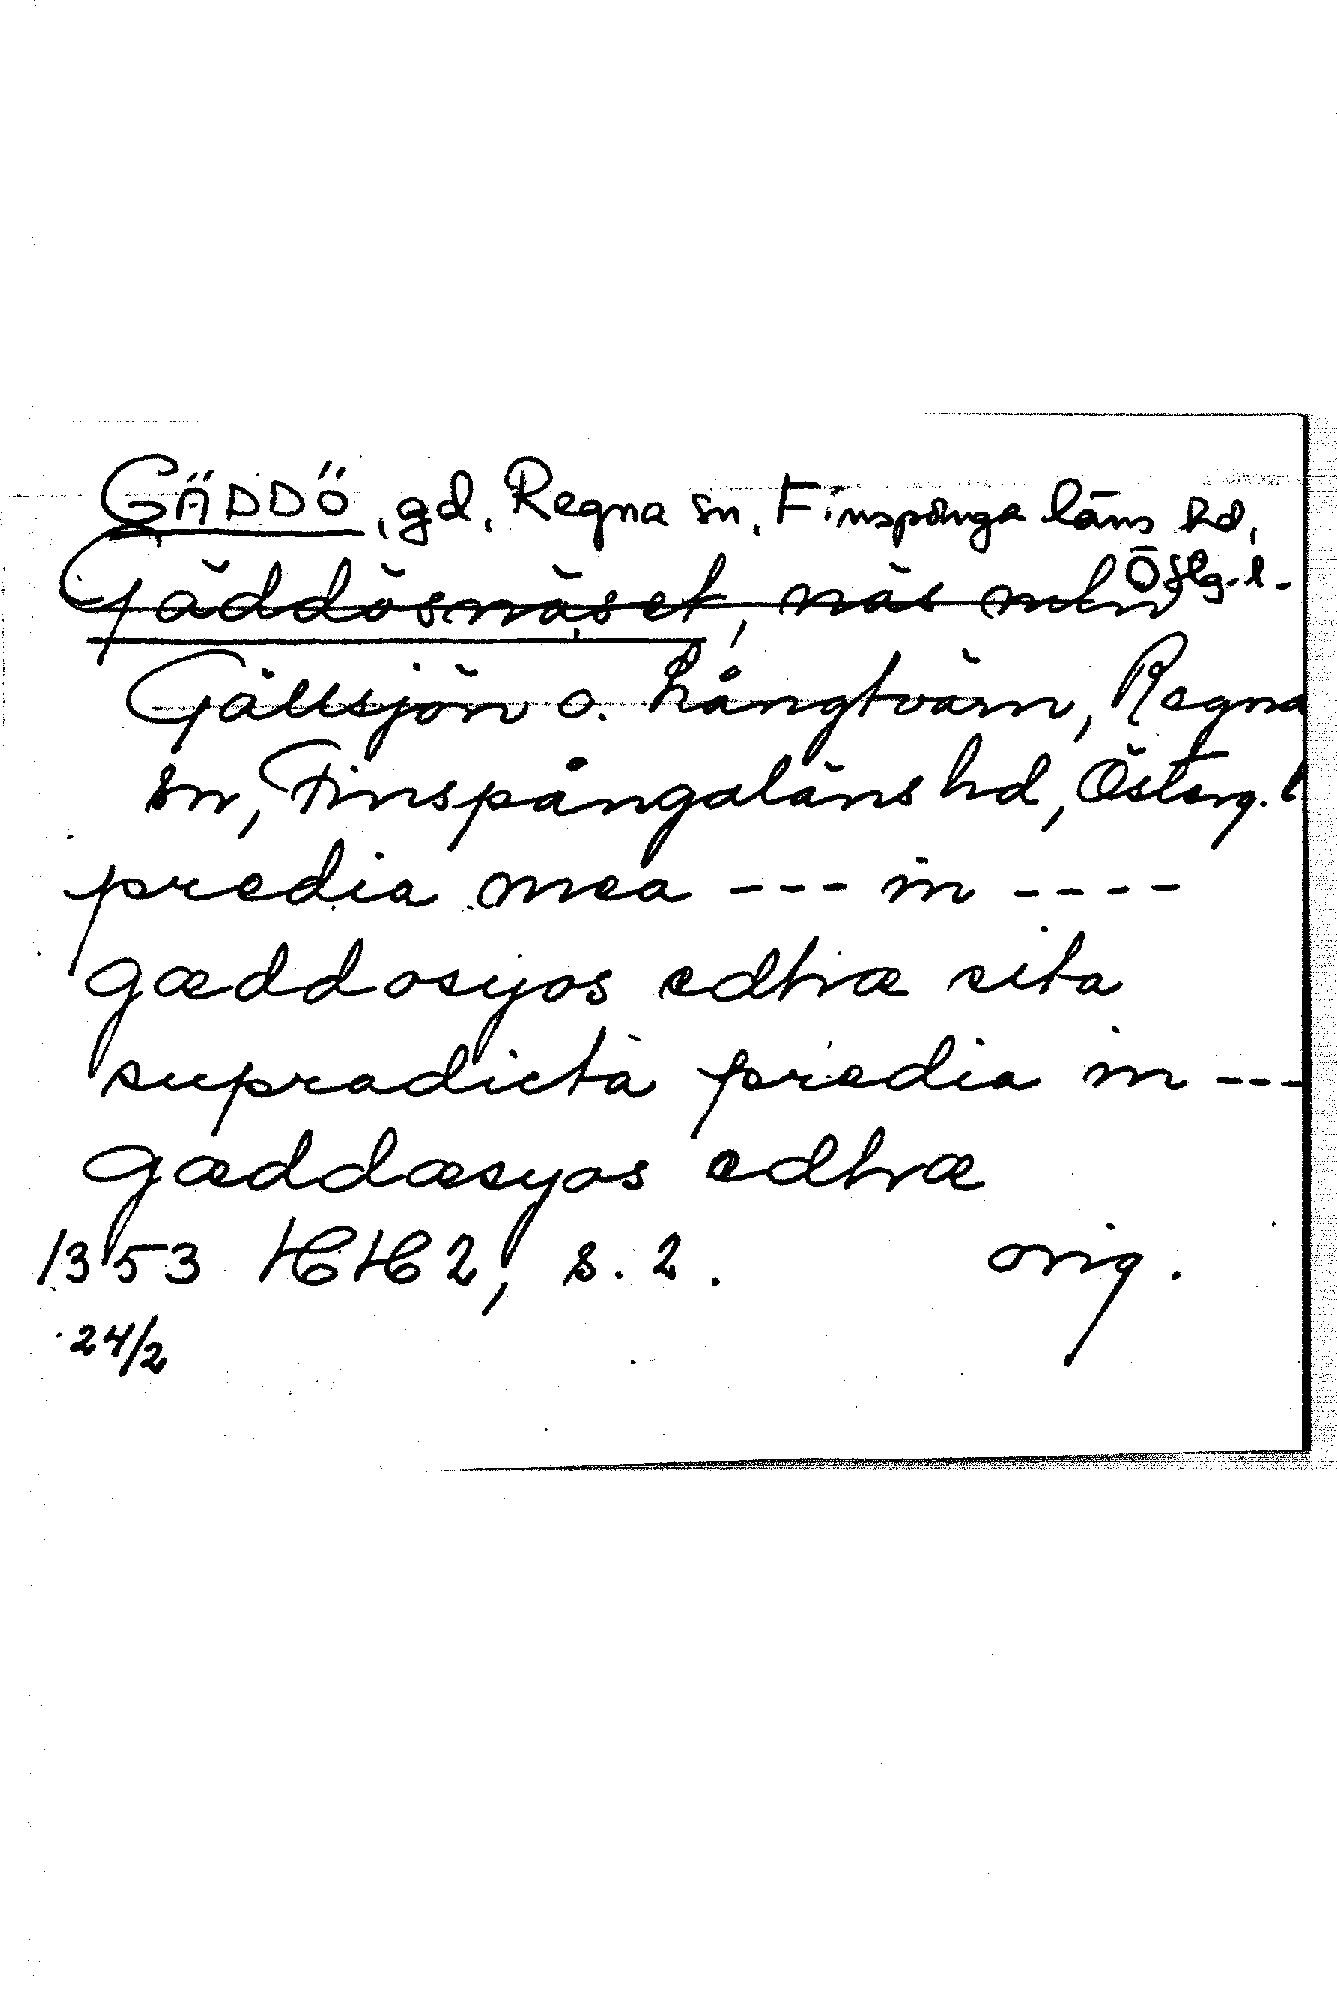 GÄDDÖ, gd, Regna sn, Finspånga läns hd,
Östg. l.
Gäddösnäset, näs mln
Gällsjön o. Långtvärn, Regna
sn, Finspångaläns hd, Österg. l
predia mea --- in ----
gæddosyos edhræ sita
supradicta predia in ---
gæddæsyos edhræ
1353 HH 2, s. 2. orig.
24/2